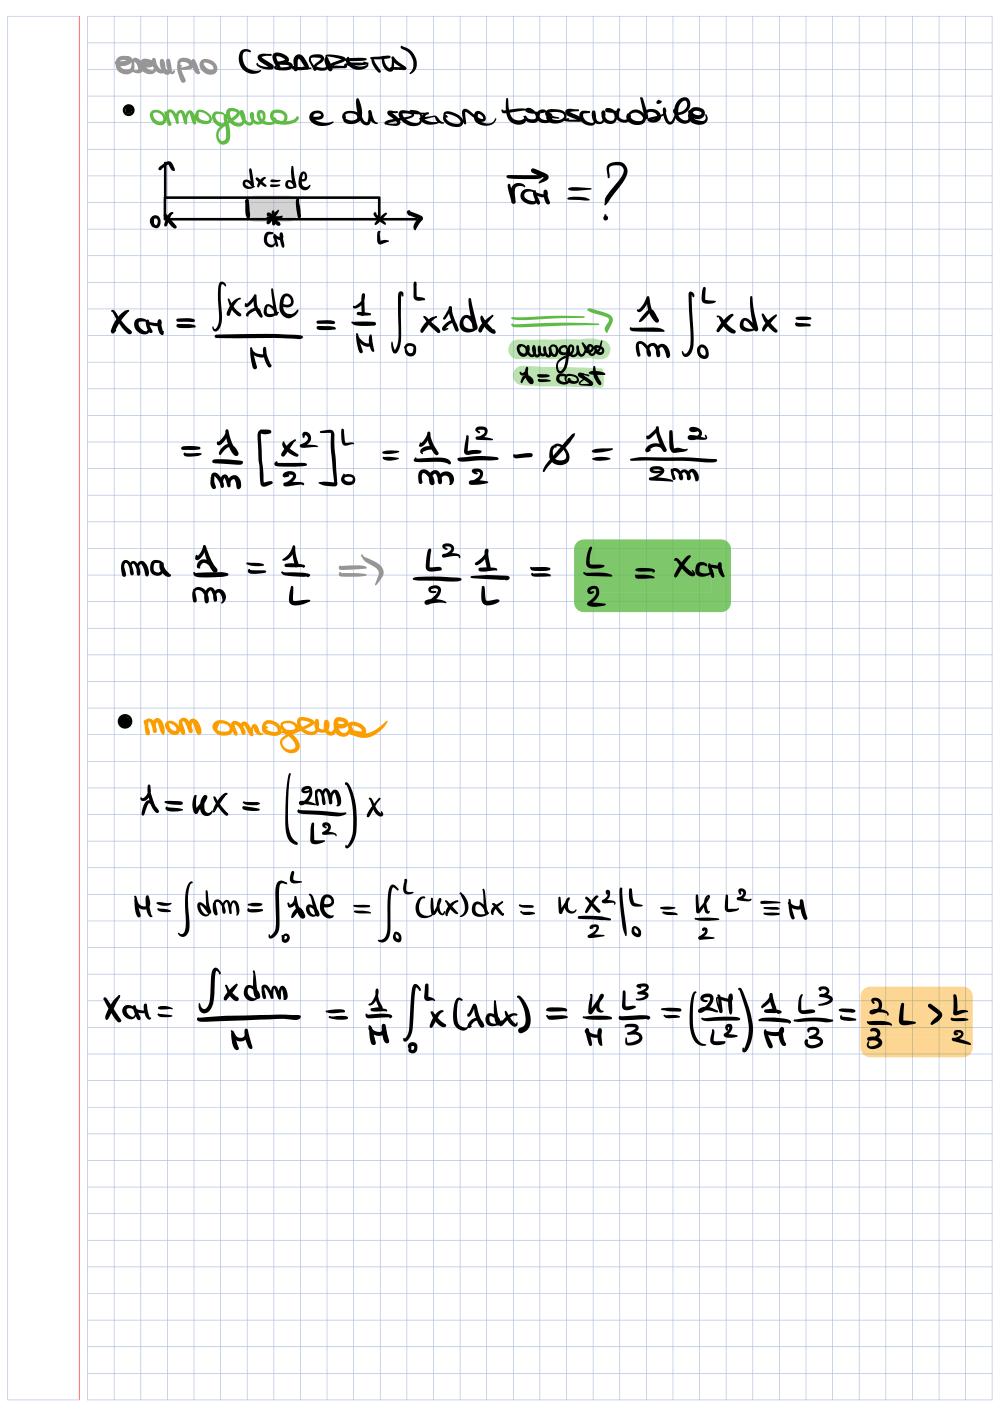 esempio (SBARRETTA)
• omogenea e di sezione trascurabile
dx = dl
O CM L
r⃗CM = ?
XCM = ∫xλdl / M = 1/M ∫₀ᴸ xλdx ⟹ λ/m ∫₀ᴸ xdx =
omogenea
λ = cost
= λ/m [x²/2]₀ᴸ = λ/m L²/2 - ∅ = λL²/2m
ma λ/m = 1/L ⇒ L²/2 1/L = L/2 = XCM
• non omogenea
λ = kx = (2m/L²) x
M = ∫dm = ∫₀ᴸ λdl = ∫₀ᴸ (kx)dx = k x²/2 |₀ᴸ = k/2 L² ≡ M
XCM = ∫xdm / M = 1/M ∫₀ᴸ x(λdx) = k/M L³/3 = (2M/L²) 1/M L³/3 = 2/3 L > L/2